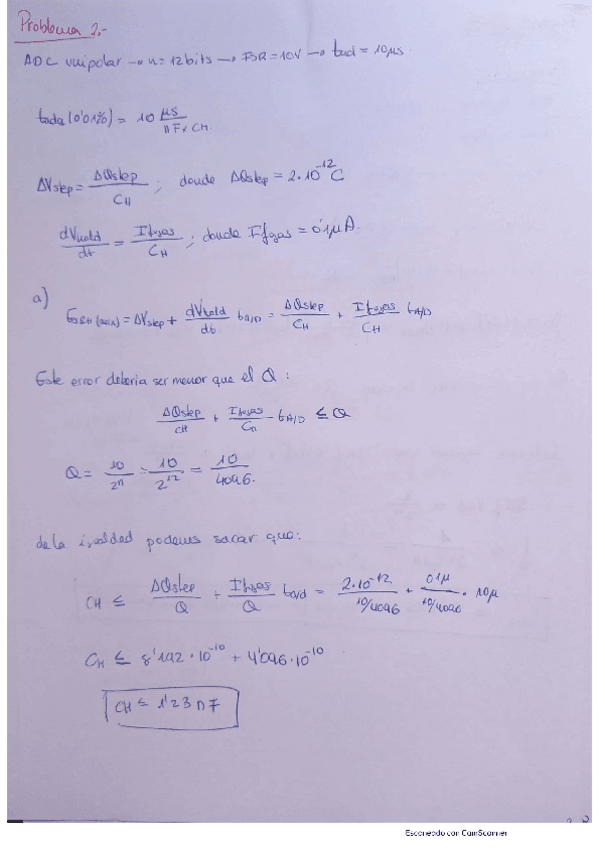 Problema 2.-
ADC unipolar → n = 12 bits → FSR = 10V → tad = 10 μs
tada (0'01%) = 10 μs / nF x CH
ΔVstep = ΔQstep / CH ; donde ΔQstep = 2·10^-12 C
dVhold / dt = Ifugas / CH ; donde Ifugas = 0'1 μA.
a)
= ΔVstep + dVhold / dt tA/D = ΔQstep / CH + Ifugas / CH tA/D
Este error debería ser menor que el Q :
ΔQstep / CH + Ifugas / CH - tA/D ≤ Q
Q = 10 / 2^n = 10 / 2^12 = 10 / 4096.
de la igualdad podemos sacar que:
CH ≤ ΔQstep / Q + Ifugas / Q ta/d = 2·10^-12 / 10/4096 + 0'1μ / 10/4096 · 10μ
CH ≤ 8'192·10^-10 + 4'096·10^-10
CH ≤ 1'23 nF
Escaneado con CamScanner